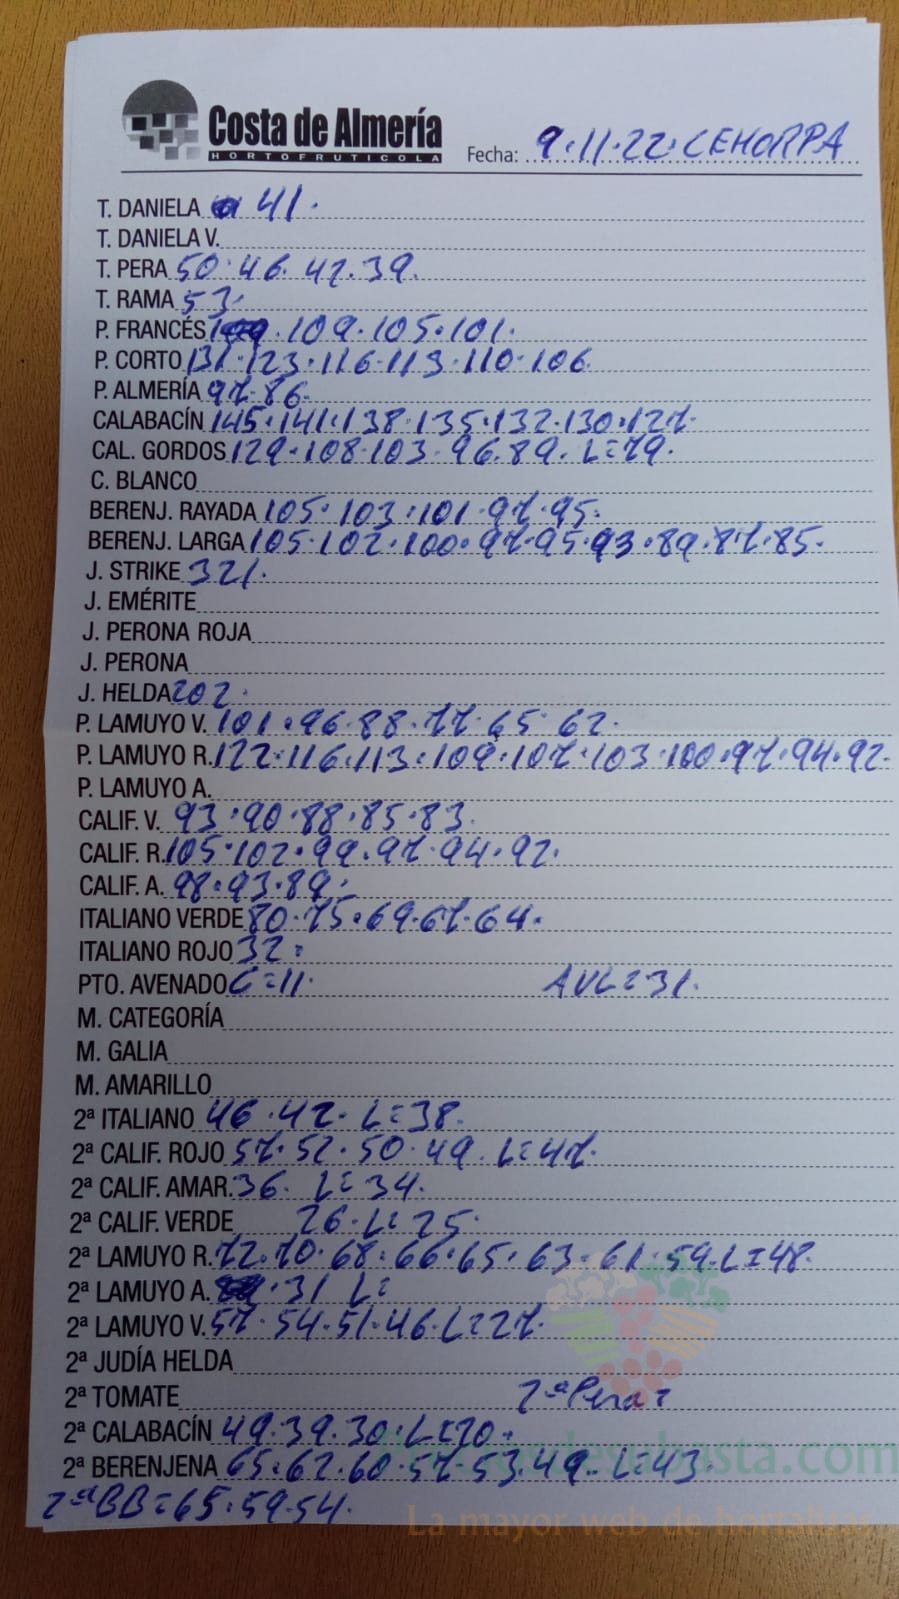 Costa de Almería
HORTOFRUTICOLA
Fecha: 9.11.22. CEHORPA
T. DANIELA 41.
T. DANIELA V.
T. PERA 50.46.42.39.
T. RAMA 53.
P. FRANCÉS .109.105.101.
P. CORTO 131.123.116.113.110.106.
P. ALMERÍA 97.86.
CALABACÍN 145.141.138.135.132.130.127.
CAL. GORDOS 129.108.103.96.89. L=79.
C. BLANCO
BERENJ. RAYADA 105.103.101.97.95.
BERENJ. LARGA 105.102.100.97.95.93.89.87.85.
J. STRIKE 321.
J. EMÉRITE
J. PERONA ROJA
J. PERONA
J. HELDA 202.
P. LAMUYO V. 101.96.88.77.65.62.
P. LAMUYO R. 122.116.113.109.107.103.100.97.94.92.
P. LAMUYO A.
CALIF. V. 93.90.88.85.83.
CALIF. R. 105.102.99.97.94.92.
CALIF. A. 98.93.89.
ITALIANO VERDE 80.75.69.67.64.
ITALIANO ROJO 32.
PTO. AVENADO C=11. AVL=31.
M. CATEGORÍA
M. GALIA
M. AMARILLO
2ª ITALIANO 46.42. L=38.
2ª CALIF. ROJO 57.52.50.49. L=47.
2ª CALIF. AMAR. 36. L=34.
2ª CALIF. VERDE 26. L=25.
2ª LAMUYO R. 72.70.68.66.65.63.61.59. L=48.
2ª LAMUYO A. .31 L=
2ª LAMUYO V. 57.54.51.46. L=27.
2ª JUDÍA HELDA
2ª TOMATE 2ª Pera=
2ª CALABACÍN 49.39.30. L=20.
2ª BERENJENA 65.62.60.57.53.49. L=43.
2ª BB=65.59.54.
La mayor web de hortalizas